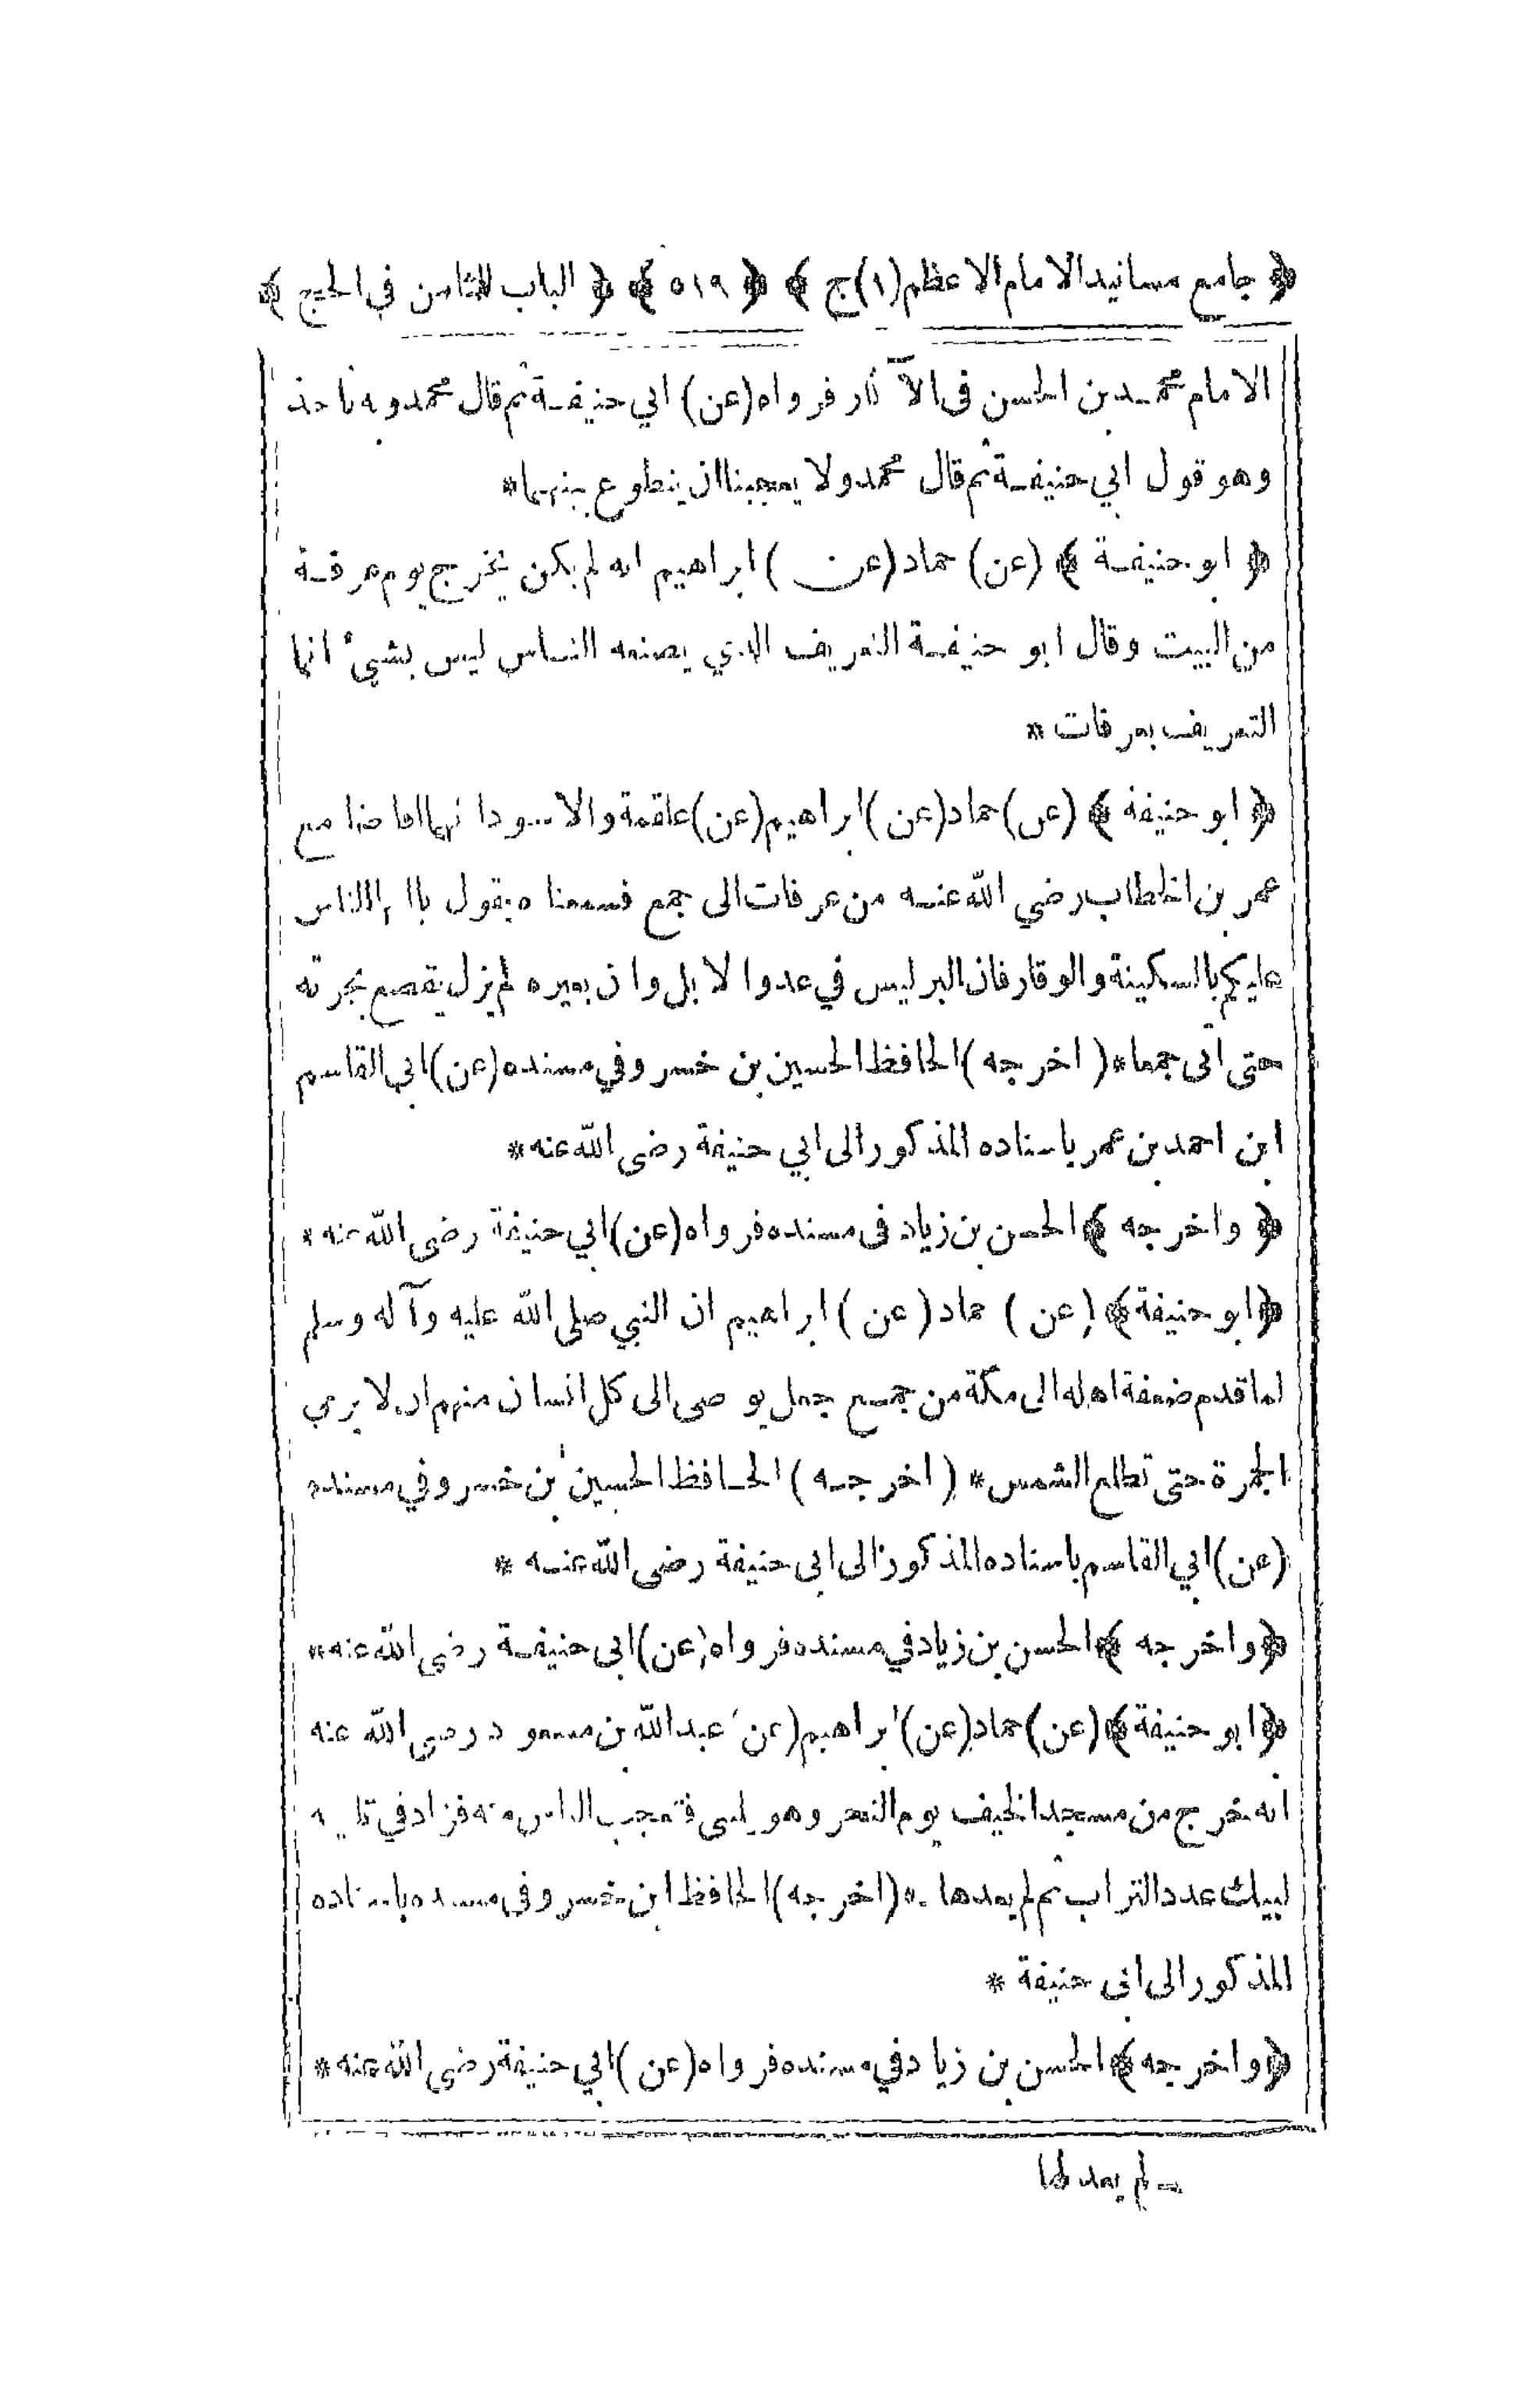 ﴿ جامع مسانيد الامام الاعظم (١) ج ﴾ ﴿ ٥١٩ ﴾ ﴿ الباب الثامن في الحج ﴾
الامام محمد بن الحسن فى الآثار فرواه (عن) ابي حنيفة ثم قال محمد وبه ناخذ
وهو قول ابي حنيفة ثم قال محمد ولا يعجبنا ان يتطوع بينهما *
﴿ ابو حنيفة ﴾ (عن) حماد (عن) ابراهيم انه لم يكن يخرج يوم عرفة
من البيت وقال ابو حنيفة التعريف الذي يصنعه الناس ليس بشيء انما
التعريف بعرفات *
﴿ ابو حنيفة ﴾ (عن) حماد (عن) ابراهيم (عن) علقمة والاسود انهما افاضا مع
عمر بن الخطاب رضي الله عنه من عرفات الى جمع فسمعناه يقول يا ايها الناس
عليكم بالسكينة والوقار فان البر ليس في عدو الابل وان بعيره لم يزل يقصع بجرته
حتى اتى جمعا * (اخرجه) الحافظ الحسين بن خسرو في مسنده (عن) ابي القاسم
ابن احمد بن عمر باسناده المذكور الى ابي حنيفة رضى الله عنه *
﴿ واخرجه ﴾ الحسن بن زياد فى مسنده فرواه (عن) ابي حنيفة رضى الله عنه *
﴿ ابو حنيفة ﴾ (عن) حماد (عن) ابراهيم ان النبي صلى الله عليه وآله وسلم
لما قدم ضعفة اهله الى مكة من جمع جعل يوصى الى كل انسان منهم ان لا يرمي
الجمرة حتى تطلع الشمس * (اخرجه) الحافظ الحسين بن خسرو في مسنده
(عن) ابي القاسم باسناده المذكور الى ابى حنيفة رضى الله عنه *
﴿ واخرجه ﴾ الحسن بن زياد في مسنده فرواه (عن) ابى حنيفة رضي الله عنه *
﴿ ابو حنيفة ﴾ (عن) حماد (عن) ابراهيم (عن) عبد الله بن مسعود رضي الله عنه
انه خرج من مسجد الخيف يوم النحر وهو يلبى فتعجب الناس منه فزاد في تلبيه
لبيك عدد التراب ثم لم يعدها * (اخرجه) الحافظ ابن خسرو فى مسنده باسناده
المذكور الى ابى حنيفة *
﴿ واخرجه ﴾ الحسن بن زياد في مسنده فرواه (عن) ابي حنيفة رضى الله عنه *
لم يعد لها